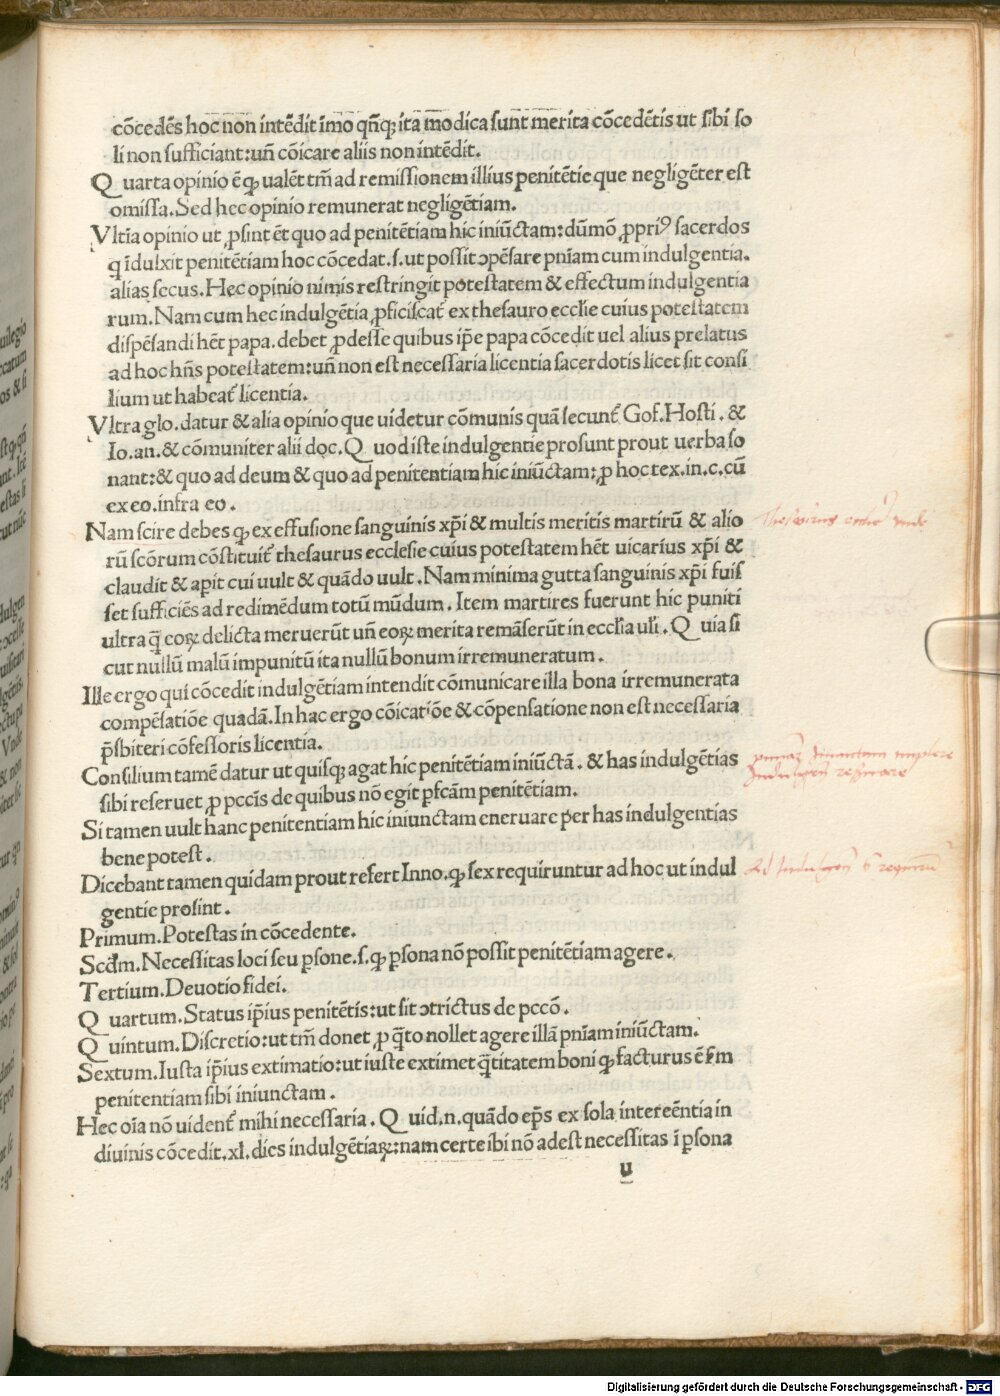 cōcedēs hoc non intēdit īmo qn̄q; ita modica sunt merita cōcedētis ut sibi so
li non sufficiant: un̄ cōicare aliis non intēdit.
Quarta opinio ē ꝙ ualēt tm̄ ad remissionem illius penitētie que negligēter est
omissa. Sed hec opinio remunerat negligētiam.
Vltīa opinio ut ꝓsint ēt quo ad penitētiam hic iniūctam: dūmō ꝓpriꝰ sacerdos
q īdulxit penitētiam hoc cōcedat. s. ut possit ↄpēsare pn̄iam cum indulgētia.
alias secus. Hec opinio nimis restringit potestatem & effectum indulgentia
rum. Nam cum hec indulgētia ꝓficiscat᷑ ex thesauro eccl̄ie cuius potestatem
dispēsandi hēt papa. debet ꝓdesse quibus ip̄e papa cōcedit uel alius prelatus
ad hoc hn̄s potestatem: un̄ non est necessaria licentia sacerdotis licet sit consi
lium ut habeat᷑ licentia.
Vltra glo. datur & alia opinio que uidetur cōmunis quā secunt᷑ Gof. Hosti. &
Io. an. & cōmuniter alii doc. Quod iste indulgentie prosunt prout uerba so
nant: & quo ad deum & quo ad penitentiam hic iniūctam: ꝑ hoc tex. in. c. cū
ex eo. infra eo.
Nam scire debes ꝙ ex effusione sanguinis xp̄i & multis meritis martirū & alio
rū scōrum cōstituit᷑ thesaurus ecclesie cuius potestatem hēt uicarius xp̄i &
claudit & aꝑit cui uult & quādo uult. Nam minima gutta sanguinis xp̄i fuis
set sufficiēs ad redimēdum totū mūdum. Item martires fuerunt hic puniti
ultra q̄ eoꝝ delicta meruerūt un̄ eoꝝ merita remāserūt in eccl̄ia ul̄i. Quia si
cut nullū malū impunitū ita nullū bonum irremuneratum.
Ille ergo qui cōcedit indulgētiam intendit cōmunicare illa bona irremunerata
compēsatiōe quadā. In hac ergo cōicatiōe & cōpensatione non est necessaria
p̄sbiteri cōfessoris licentia.
Consilium tamē datur ut quisq; agat hic penitētiam iniūctā. & has indulgētias
sibi reseruet ꝓ pcc̄is de quibus nō egit ꝑfcām penitētiam.
Si tamen uult hanc penitentiam hic iniunctam eneruare per has indulgentias
bene potest.
Dicebant tamen quidam prout refert Inno. ꝙ sex requiruntur ad hoc ut indul
gentie prosint.
Primum. Potestas in cōcedente.
Scd̄m. Necessitas loci seu ꝑsone. s. ꝙ ꝑsona nō possit penitētiam agere.
Tertium. Deuotio fidei.
Quartum. Status ip̄ius penitētis: ut sit ↄtrictus de pccō.
Quintum. Discretio: ut tm̄ donet ꝓ q̄to nollet agere illā pn̄iam iniūctam.
Sextum. Iusta ip̄ius extimatio: ut iuste extimet q̄titatem boni ꝙ facturus ē s̄m
penitentiam sibi iniunctam.
Hec oīa nō uident᷑ mihi necessaria. Quid. n. quādo ep̄s ex sola intereēntia in
diuinis cōcedit. xl. dies indulgētiaꝝ: nam certe ibi nō adest necessitas ī ꝑsona
u
Digitalisierung gefördert durch die Deutsche Forschungsgemeinschaft - DFG